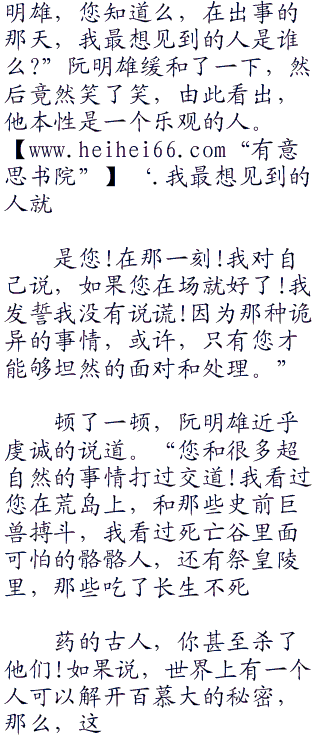 明雄，您知道么，在出事的
那天，我最想见到的人是谁
么?”阮明雄缓和了一下，然
后竟然笑了笑，由此看出，
他本性是一个乐观的人。
【www.heihei66.com“有意
思书院”】‘.我最想见到的
人就
是您!在那一刻!我对自
己说，如果您在场就好了!我
发誓我没有说谎!因为那种诡
异的事情，或许，只有您才
能够坦然的面对和处理。”
顿了一顿，阮明雄近乎
虔诚的说道。“您和很多超
自然的事情打过交道!我看过
您在荒岛上，和那些史前巨
兽搏斗，我看过死亡谷里面
可怕的骼骼人，还有祭皇陵
里，那些吃了长生不死
药的古人，你甚至杀了
他们!如果说，世界上有一个
人可以解开百慕大的秘密，
那么，这